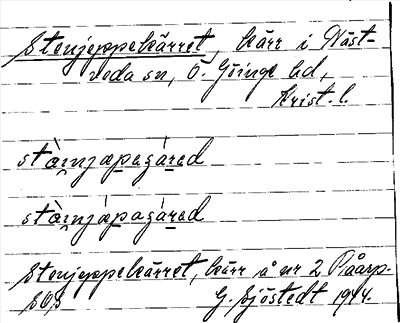 Stenjeppekärret, kärr i Näst-
veda sn, Ö. Göinge hd,
Krist. l.
stàinjæpagáred
stàinjápagáred
Stenjeppekärret, kärr å nr 2 Råarp.
G. Sjöstedt 1944.